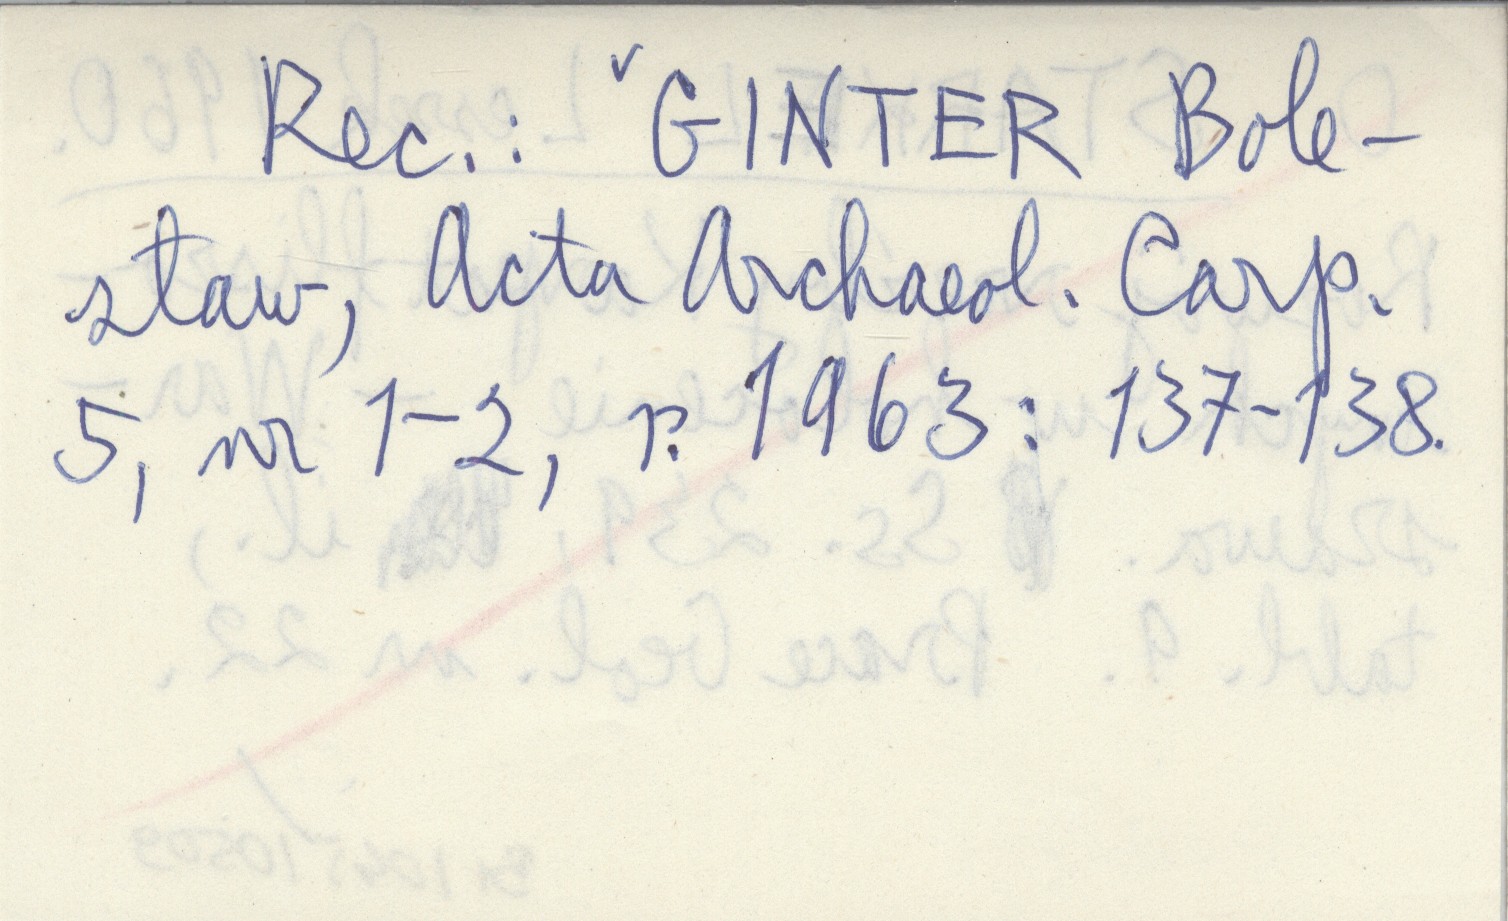 Rec.: ˅GINTER Bole-
sław, Acta Archaeol. Carp.
5, nr 1-2, r. 1963: 137-138.